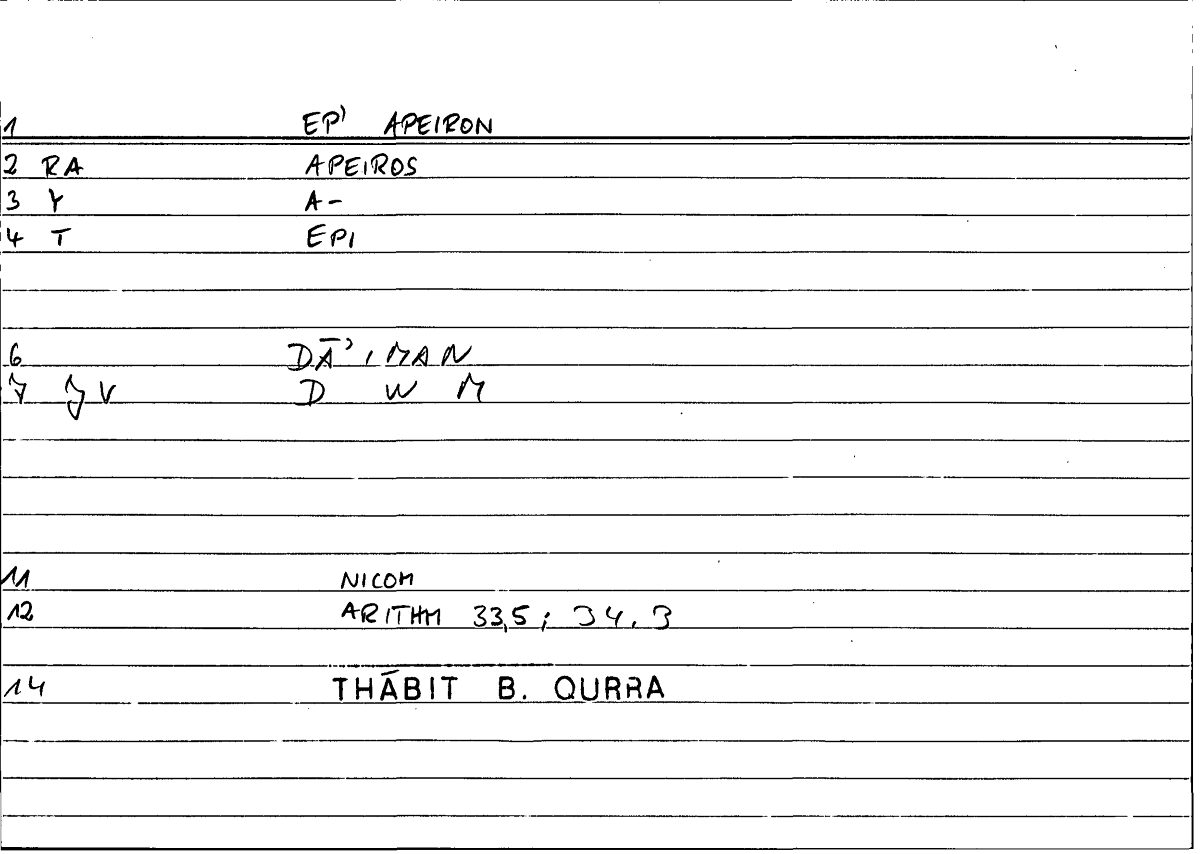 1 EP' APEIRON
2 RA APEIROS
3 Y A-
4 T EPI
6 DĀ'IMAN
7 JV D W M
11 NICOM
12 ARITHM 33,5; 34.3
14 THĀBIT B. QURRA